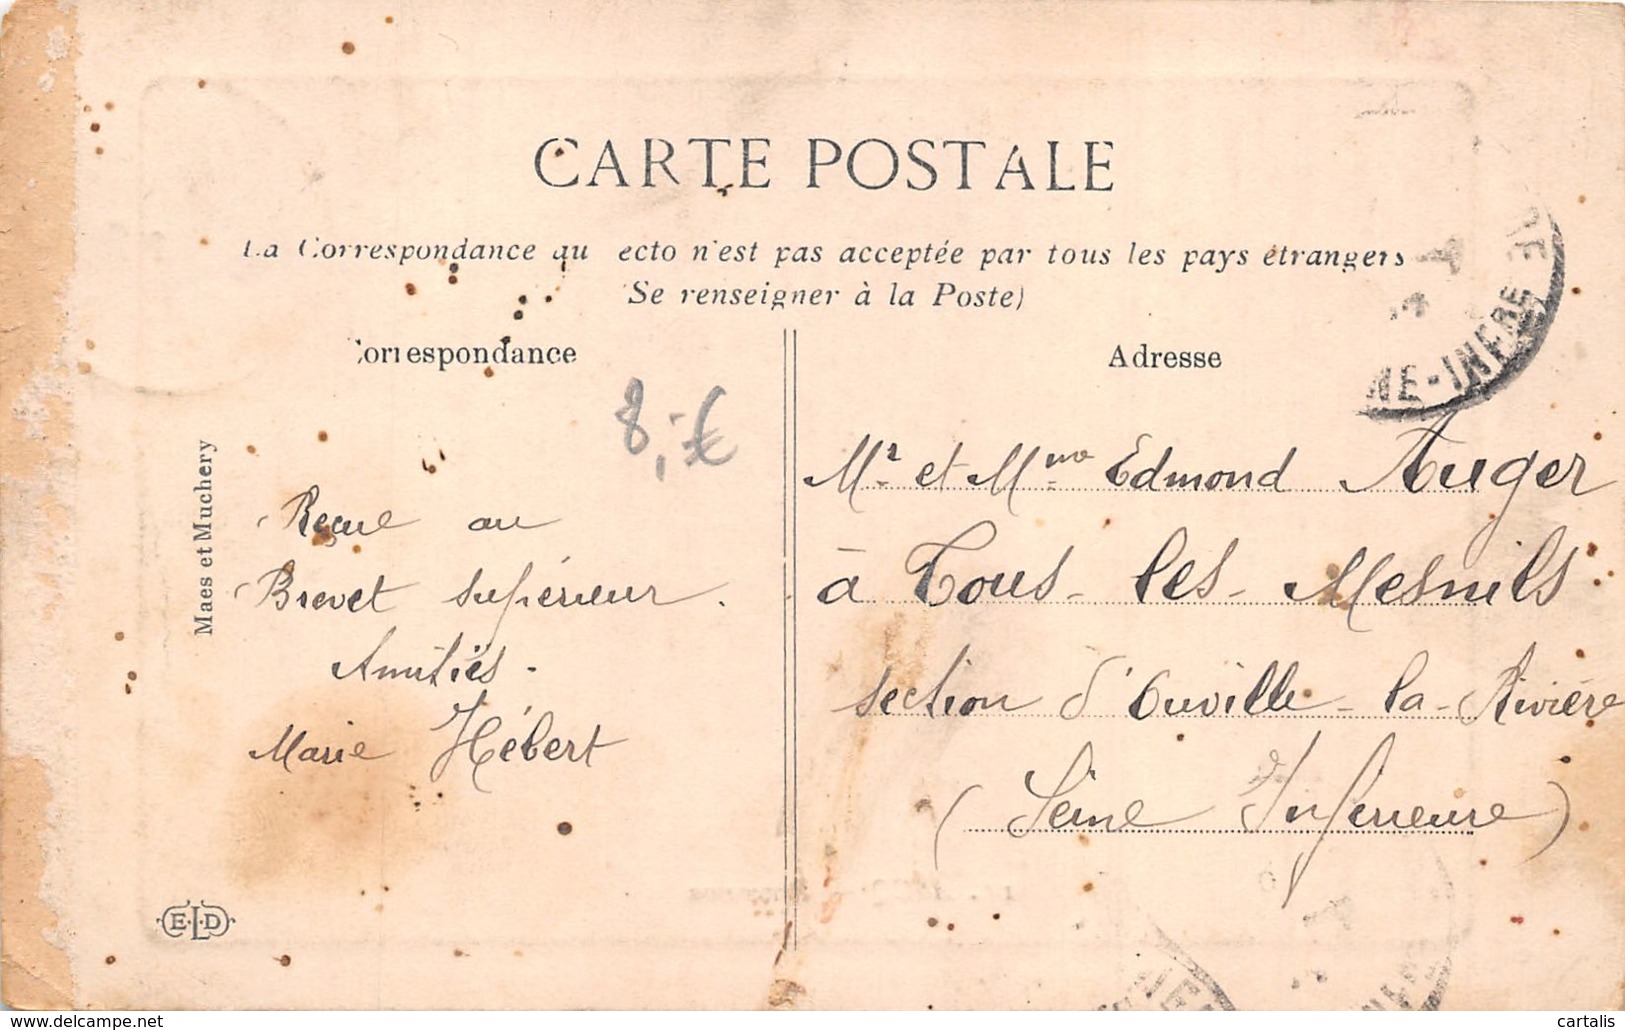 CARTE POSTALE
La Correspondance au ecto n'est pas acceptée par tous les pays étrangers
(Se renseigner à la Poste)
Correspondance
Adresse
8,-€
Maes et Muchery
Reçue au
Brevet supérieur.
Amitiés.
Marie Hébert
Mr. et Mme Edmond Auger
à Tous-les-Mesnils
section d'Ouville-la-Rivière
(Seine Inférieure)
NE-INFRE
E.L.D
delcampe.net
cartalis